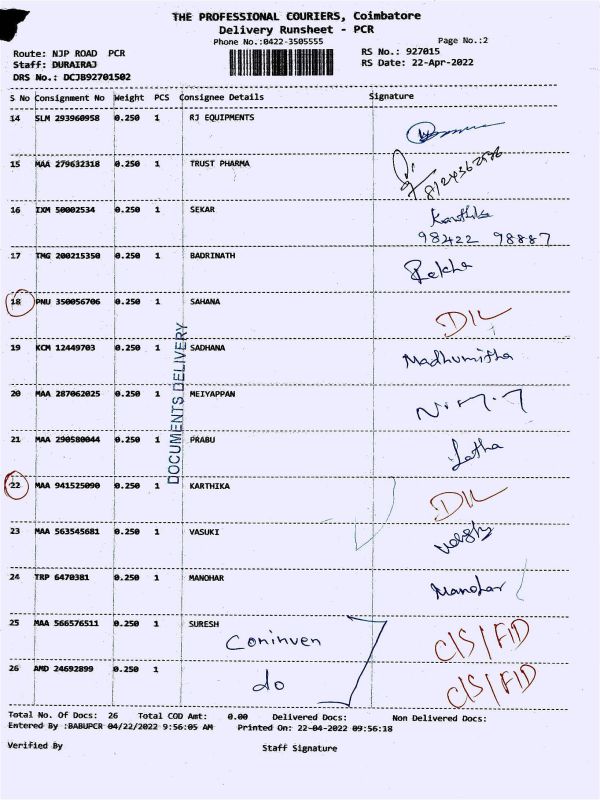 THE PROFESSIONAL COURIERS, Coimbatore
Delivery Runsheet - PCR
Phone No.:0422-3505555
Page No.:2
Route: NJP ROAD PCR
RS No.: 927015
Staff: DURAIRAJ
RS Date: 22-Apr-2022
DRS No.: DCJB92701502
S No Consignment No Weight PCS Consignee Details Signature
14 SLM 293960958 0.250 1 RJ EQUIPMENTS
15 MAA 279632318 0.250 1 TRUST PHARMA
16 IXM 50002534 0.250 1 SEKAR Karthika
98422 98887
17 TMG 200215350 0.250 1 BADRINATH Rekha
18 PNU 350056706 0.250 1 SAHANA D/L
19 KCM 12449703 0.250 1 SADHANA Madhumitha
20 MAA 287062025 0.250 1 MEIYAPPAN
21 MAA 290580044 0.250 1 PRABU Latha
DOCUMENTS DELIVERY
22 MAA 941525090 0.250 1 KARTHIKA D/L
23 MAA 563545681 0.250 1 VASUKI
24 TRP 6470381 0.250 1 MANOHAR Manohar
25 MAA 566576511 0.250 1 SURESH C/S/FID
Coninven
26 AMD 24692899 0.250 1 do C/S/FID
Total No. Of Docs: 26 Total COD Amt: 0.00 Delivered Docs: Non Delivered Docs:
Entered By :BABUPCR 04/22/2022 9:56:05 AM Printed On: 22-04-2022 09:56:18
Verified By Staff Signature